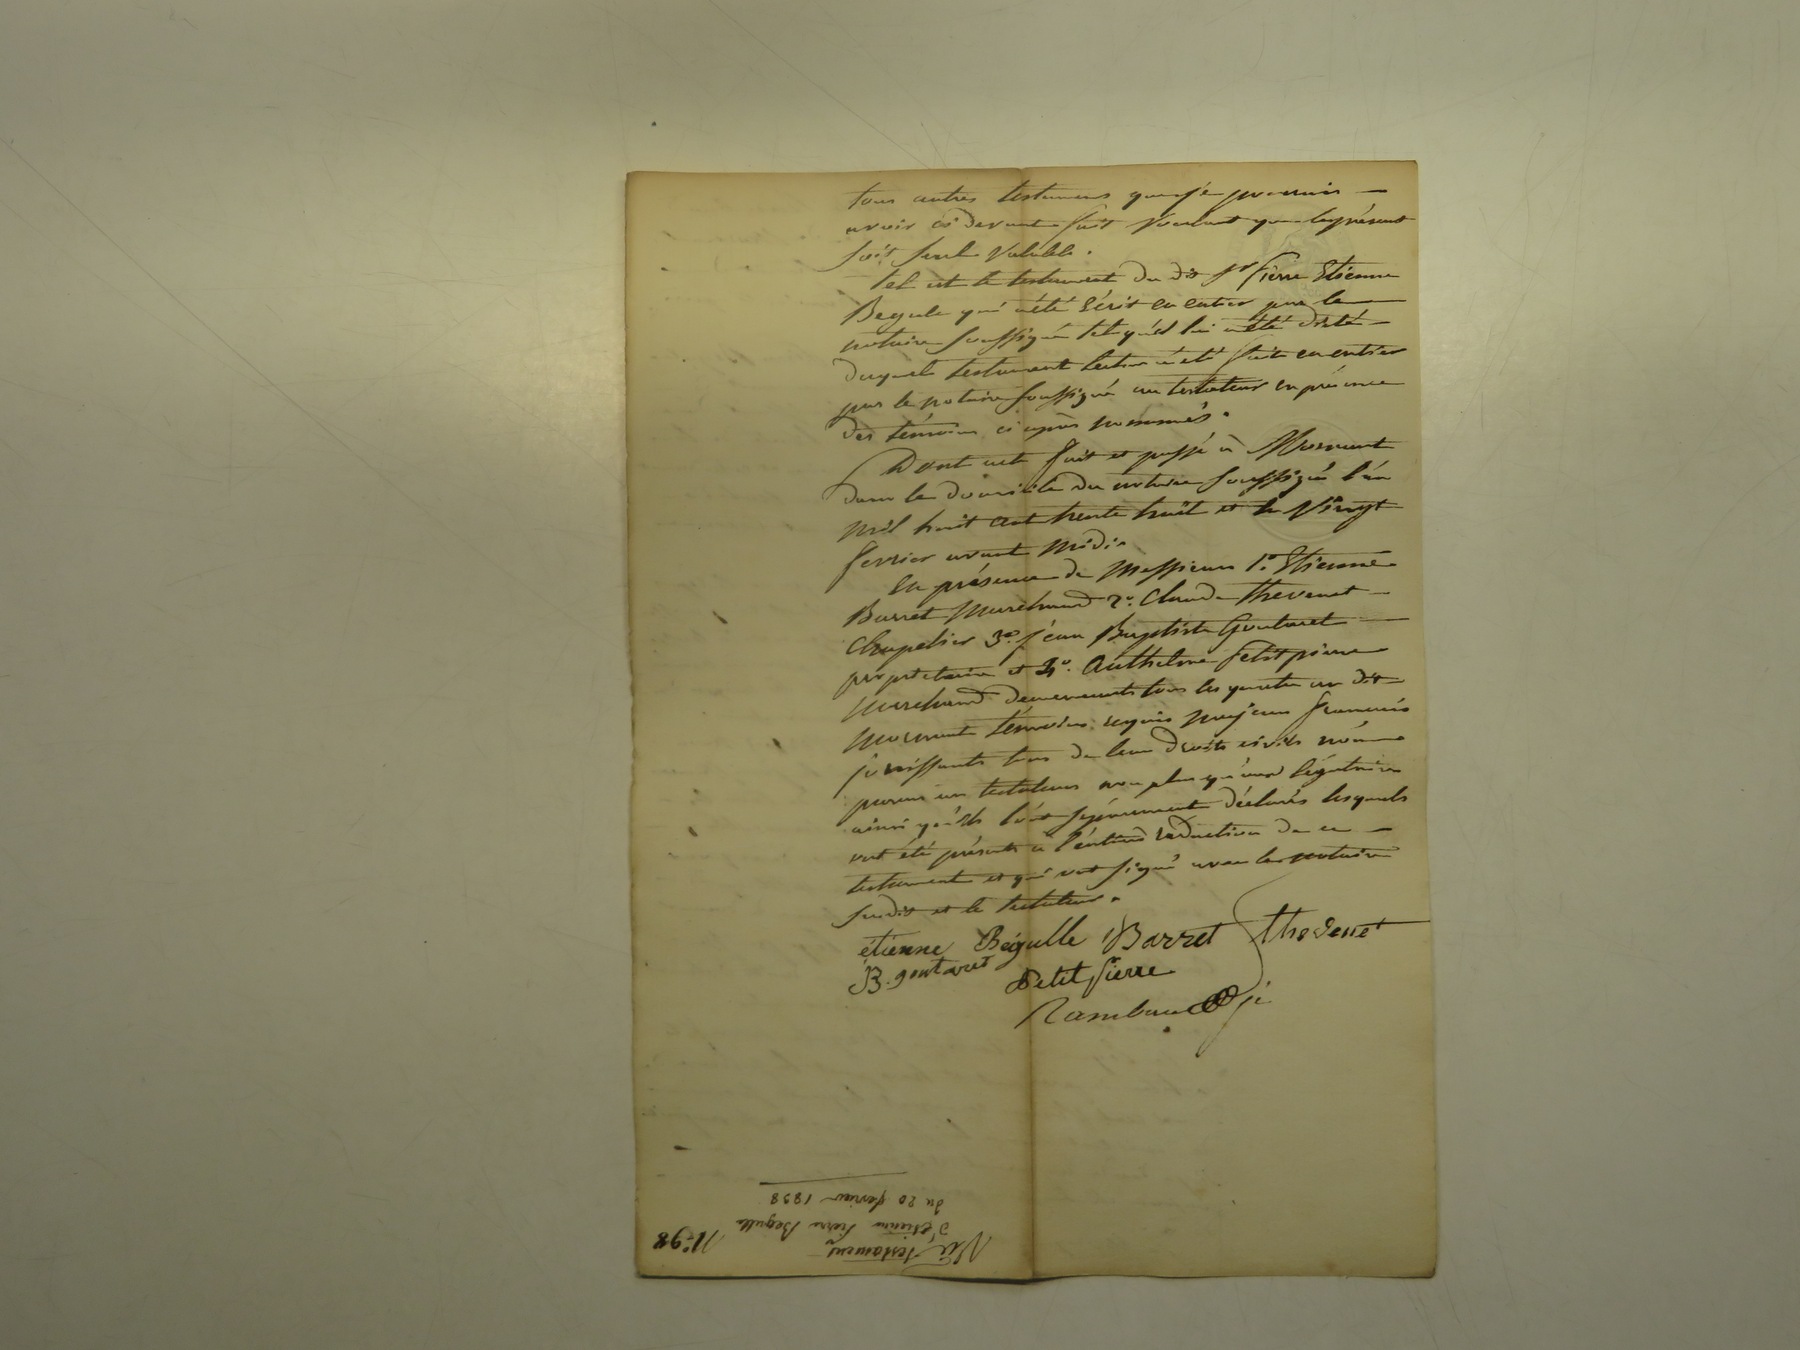 tous autres testamens que je pourrais —
avoir ci devant fait voulant que le présent
soit seul valable.
Tel est le testament du dit Sr Pierre Etienne
Begule qui a été écrit en entier par le —
notaire soussigné tel qu'il lui a été dicté —
duquel testament lecture a été faite en entier
par le notaire soussigné au testateur en présence
des témoins ci après nommés.
Dont acte fait et passé à Mornant
dans le domicile du notaire soussigné l'an
mil huit cent trente huit et le vingt
fevrier avant midi.
En présence de Messieurs 1o. Etienne
Barret marchand 2o. Claude Thevenet —
chapelier 3o. jean Baptiste Goutaret —
propriétaire et 4o. Anthelme Petitpierre
marchand demeurants tous les quatre au dit
Mornant témoins requis majeurs francais
jouissants tous de leurs droits civils non
parens au testateur non plus qu'aux légataires
ainsi qu'ils l'ont séparement déclarés lesquels
ont été présents à l'entière redaction de ce —
testament et qui ont signé avec le notaire
susdit et le testateur.
etienne Bégulle Barret Thevenet
B. goutaret Petit Pierre
Rambaud
No. 98
testament
d'Etienne Pierre Begulle
du 20 fevrier 1838